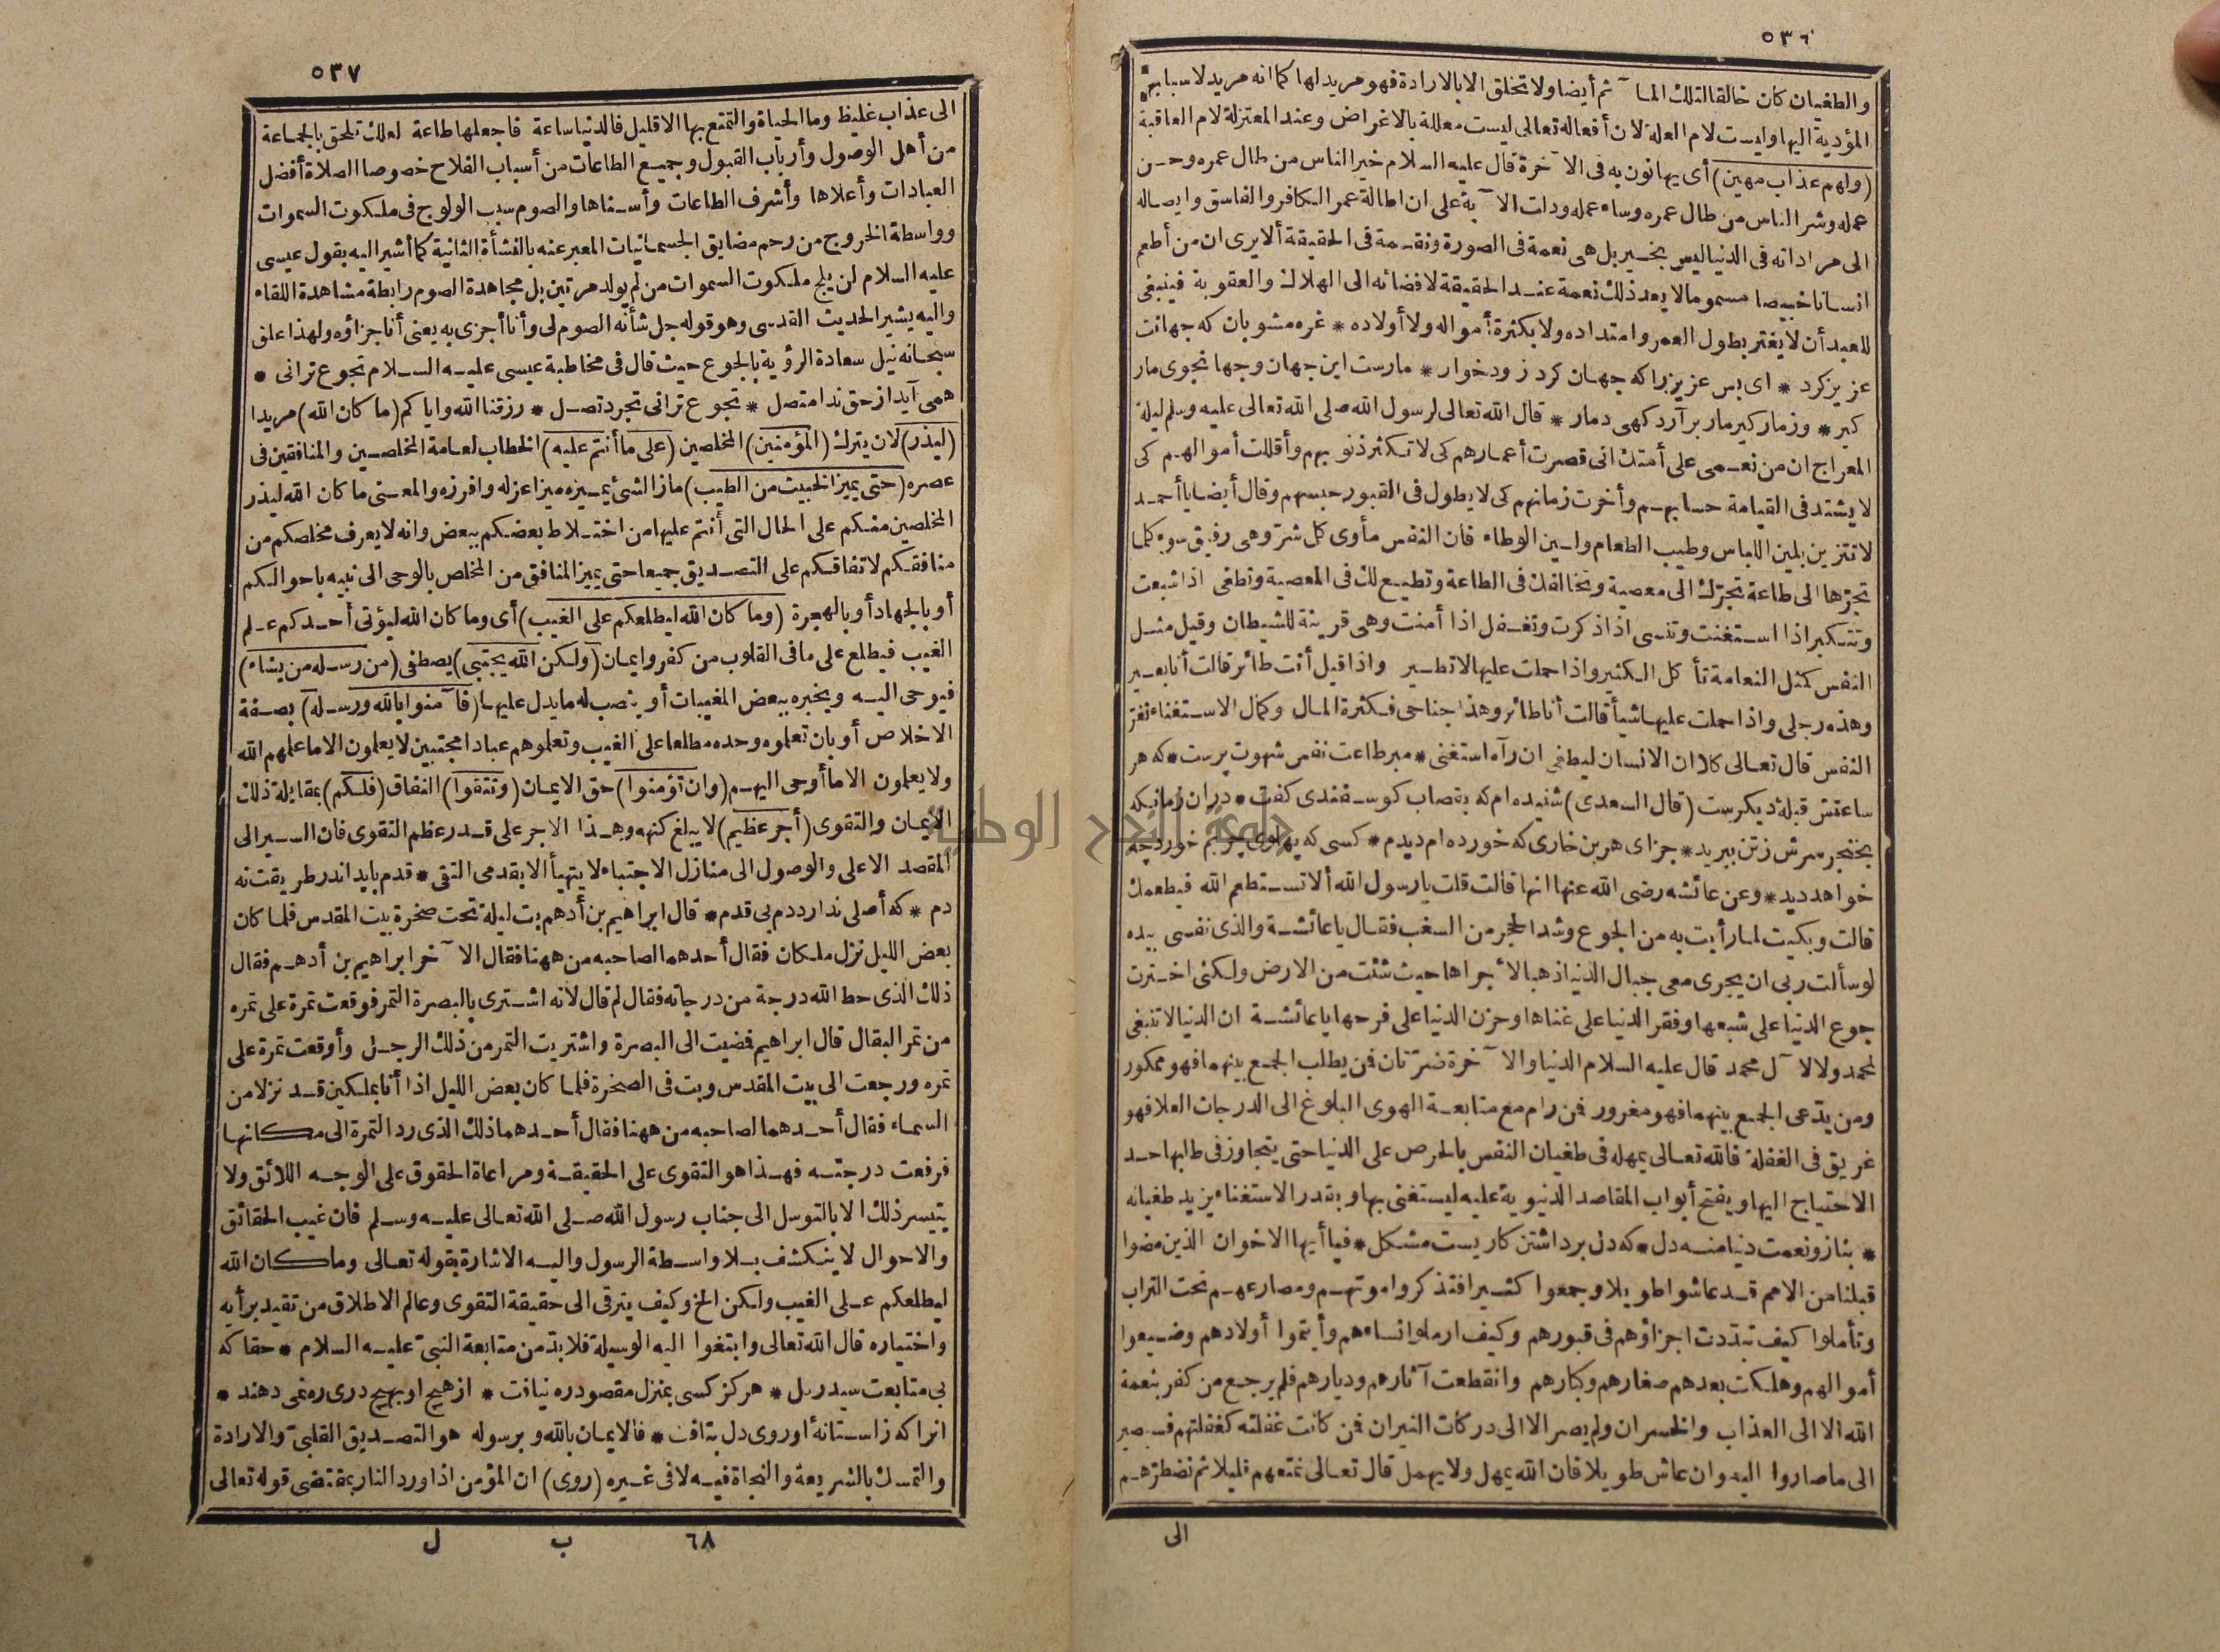 ٥٣٦
والطغيان كان خالقا لتلك المآثم أيضا ولا تخلق الا بالارادة فهو مريد لها كما انه مريد لاسبابها
المؤدية اليها وليست لام العلة لان أفعاله تعالى ليست معللة بالاغراض وعند المعتزلة لام العاقبة
(ولهم عذاب مهين) أى يهانون به فى الآخرة قال عليه السلام خير الناس من طال عمره وحسن
عمله وشر الناس من طال عمره وساء عمله ودلت الآية على ان اطالة عمر الكافر والفاسق وايصاله
الى مراداته فى الدنيا ليس بخير بل هى نعمة فى الصورة ونقمة فى الحقيقة ألا يرى ان من أطعم
انسانا خبيصا مسموما لا يعد ذلك نعمة عند الحقيقة لافضائه الى الهلاك والعقوبة فينبغى
للعبد أن لا يغتر بطول العمر وامتداده ولا بكثرة أمواله ولا أولاده * غره مشو بان كه جهانت
عزيز كرد * اى بس عزيز را كه جهان كرد زود خوار * مارست اين جهان وجهانجوى مار
كير * وز مار كير مار برآرد كهى دمار * قال الله تعالى لرسول الله صلى الله تعالى عليه وسلم ليلة
المعراج ان من نعمى على أمتك انى قصرت أعمارهم كى لا تكثر ذنوبهم وأقللت أموالهم كى
لا يشتد فى القيامة حسابهم وأخرت زمانهم كى لا يطول فى القبور حبسهم وقال أيضا يا أحمد
لا تتزين بلين اللباس وطيب الطعام ولين الوطاء فان النفس مأوى كل شر وهى رفيق سوء كلما
تجرّها الى طاعة تجرّك الى معصية وتخالفك فى الطاعة وتطيع لك فى المعصية وتطغى اذا شبعت
وتتكبر اذا استغنت وتنسى اذا ذكرت وتغفل اذا أمنت وهى قرينة للشيطان وقيل مثل
النفس كمثل النعامة تأكل الكثير واذا حملت عليها لا تطير واذا قيل أنت طائر قالت أنا بعير
وهذه رجلى واذا حملت عليها شيأ قالت أنا طائر وهذا جناحى فكثرة المال وكمال الاستغناء تغرّ
النفس قال تعالى كلا ان الانسان ليطغى ان رآه استغنى * مبر طاعت نفس شهوت پرست * كه هر
ساعتش قبلهٔ ديكرست (قال السعدى) شنيده ام كه بقصاب كوسفندى كفت * در ان زمانيكه
بخنجر سرش ز تن ببريد * جزاى هر بن خارى كه خورده ام ديدم * كسى كه پهلوى چربم خورد چه
خواهد ديد * وعن عائشه رضى الله عنها انها قالت قلت يا رسول الله ألا تستطعم الله فيطعمك
قالت وبكيت لما رأيت به من الجوع وشد الحجر من السغب فقال يا عائشة والذى نفسى بيده
لو سألت ربى ان يجرى معى جبال الدنيا ذهبا لأجراها حيث شئت من الارض ولكنى اخترت
جوع الدنيا على شبعها وفقر الدنيا على غناها وحزن الدنيا على فرحها يا عائشة ان الدنيا لا تنبغى
لمحمد ولا لآل محمد قال عليه السلام الدنيا والآخرة ضرّتان فمن يطلب الجمع بينهما فهو ممكور
ومن يدّعى الجمع بينهما فهو مغرور فمن رام مع متابعة الهوى البلوغ الى الدرجات العلا فهو
غريق فى الغفلة فالله تعالى يمهله فى طغيان النفس بالحرص على الدنيا حتى يتجاوز فى طلبها حد
الاحتياج اليها ويفتح أبواب المقاصد الدنيوية عليه ليستغنى بها وبقدر الاستغناء يزيد طغيانه
* بناز ونعمت دنيا منه دل * كه دل بر داشتن كاريست مشكل * فيا أيها الاخوان الذين مضوا
قبلنا من الامم قد عاشوا طويلا وجمعوا كثيرا فتذكروا موتهم ومصارعهم تحت التراب
وتأملوا كيف تبدّدت اجزاؤهم فى قبورهم وكيف ارملوا نساءهم وأيتموا أولادهم وضيعوا
أموالهم وهلكت بعدهم صغارهم وكبارهم وانقطعت آثارهم وديارهم فلم يرجع من كفر بنعمة
الله الا الى العذاب والخسران ولم يصر الا الى دركات النيران فمن كانت غفلته كغفلتهم فسيصير
الى ما صاروا اليه وان عاش طويلا فان الله يمهل ولا يهمل قال تعالى نمتعهم قليلا ثم نضطرّهم
الى
٥٣٧
الى عذاب غليظ وما الحياة والتمتع بها الا قليل فالدنيا ساعة فاجعلها طاعة لعلك تلحق بالجماعة
من أهل الوصول وأرباب القبول وجميع الطاعات من أسباب الفلاح خصوصا الصلاة أفضل
العبادات وأعلاها وأشرف الطاعات وأسناها والصوم سبب الولوج فى ملكوت السموات
وواسطة الخروج من رحم مضايق الجسمانيات المعبر عنه بالنشأة الثانية كما أشير اليه بقول عيسى
عليه السلام لن يلج ملكوت السموات من لم يولد مرتين بل مجاهدة الصوم رابطة مشاهدة اللقاء
واليه يشير الحديث القدسى وهو قوله جل شأنه الصوم لى وأنا أجزى به يعنى أنا جزاؤه ولهذا علق
سبحانه نيل سعادة الرؤية بالجوع حيث قال فى مخاطبة عيسى عليه السلام تجوع ترانى *
همى آيد از حق ندا متصل * تجوع ترانى تجرد تصل * رزقنا الله واياكم (ما كان الله) مريدا
(ليذر) لان يترك (المؤمنين) المخلصين (على ما أنتم عليه) الخطاب لعامة المخلصين والمنافقين فى
عصره (حتى يميز الخبيث من الطيب) ماز الشئ يميزه ميزا عزله وافرزه والمعنى ما كان الله ليذر
المخلصين منكم على الحال التى أنتم عليها من اختلاط بعضكم ببعض وانه لا يعرف مخلصكم من
منافقكم لاتفاقكم على التصديق جميعا حتى يميز المنافق من المخلص بالوحى الى نبيه باحوالكم
أو بالجهاد أو بالهجرة (وما كان الله ليطلعكم على الغيب) أى وما كان الله ليؤتى أحدكم علم
الغيب فيطلع على ما فى القلوب من كفر وايمان (ولكن الله يجتبى) يصطفى (من رسله من يشاء)
فيوحى اليه ويخبره ببعض المغيبات أو ينصب له ما يدل عليها (فآمنوا بالله ورسله) بصفة
الاخلاص أو بان تعلموه وحده مطلعا على الغيب وتعلموهم عبادا مجتبين لا يعلمون الا ما علمهم الله
ولا يعلمون الا ما أوحى اليهم (وان تؤمنوا) حق الايمان (وتتقوا) النفاق (فلكم) بمقابلة ذلك
الايمان والتقوى (أجر عظيم) لا يبلغ كنهه وهذا الاجر على قدر عظم التقوى فان السير الى
المقصد الاعلى والوصول الى منازل الاجتباء لا يتهيأ الا بقدمى التقى * قدم بايد اندر طريقت نه
دم * كه أصلى ندارد دم بى قدم * قال ابراهيم بن أدهم بت ليلة تحت صخرة بيت المقدس فلما كان
بعض الليل نزل ملكان فقال أحدهما لصاحبه من ههنا فقال الآخر ابراهيم بن أدهم فقال
ذلك الذى حط الله درجة من درجاته فقال لم قال لانه اشترى بالبصرة التمر فوقعت تمرة على تمره
من تمر البقال قال ابراهيم فمضيت الى البصرة واشتريت التمر من ذلك الرجل وأوقعت تمرة على
تمره ورجعت الى بيت المقدس وبت فى الصخرة فلما كان بعض الليل اذا أنا بملكين قد نزلا من
السماء فقال أحدهما لصاحبه من ههنا فقال أحدهما ذلك الذى رد التمرة الى مكانها
فرفعت درجته فهذا هو التقوى على الحقيقة ومراعاة الحقوق على الوجه اللائق ولا
يتيسر ذلك الا بالتوسل الى جناب رسول الله صلى الله تعالى عليه وسلم فان غيب الحقائق
والاحوال لا ينكشف بلا واسطة الرسول واليه الاشارة بقوله تعالى وما كان الله
ليطلعكم على الغيب ولكن الخ وكيف يترقى الى حقيقة التقوى وعالم الاطلاق من تقيد برأيه
واختياره قال الله تعالى وابتغوا اليه الوسيلة فلا بدّ من متابعة النبىّ عليه السلام * حقا كه
بى متابعت سيد رسل * هركز كسى بمنزل مقصود ره نيافت * از هيچ او بهيچ درى ره نمى دهند *
انرا كه ز استانهٔ او روى دل بتافت * فالايمان بالله وبرسوله هو التصديق القلبىّ والارادة
والتمسك بالشريعة والنجاة فيه لا فى غيره (روى) ان المؤمن اذا ورد النار بمقتضى قوله تعالى
٦٨ ب ل
جامعة النجاح الوطنية